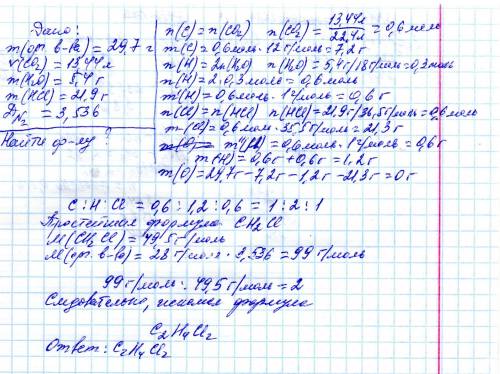 Дано:
m(орг. в-ва) = 29,7 г
v(CO2) = 13,44 л
m(H2O) = 5,4 г
m(HCl) = 21,9 г
DN2 = 3,536
Найти ф-лу ?
n(C) = n(CO2) n(CO2) = 13,44л / 22,4л = 0,6 моль
m(C) = 0,6 моль · 12 г/моль = 7,2 г
n(H) = 2n(H2O) n(H2O) = 5,4 г/18 г/моль = 0,3 моль
n(H) = 2·0,3 моль = 0,6 моль
m(H) = 0,6 моль · 1 г/моль = 0,6 г
n(Cl) = n(HCl) n(HCl) = 21,9 г/36,5 г/моль = 0,6 моль
m(Cl) = 0,6 моль · 35,5 г/моль = 21,3 г
m'(H) = 0,6 моль · 1 г/моль = 0,6 г
m(H) = 0,6 г + 0,6 г = 1,2 г
m(O) = 29,7 г - 7,2 г - 1,2 г - 21,3 г = 0 г
C : H : Cl = 0,6 : 1,2 : 0,6 = 1 : 2 : 1
Простейшая формула CH2Cl
M(CH2Cl) = 49,5 г/моль
M(орг. в-ва) = 28 г/моль · 3,536 = 99 г/моль
99 г/моль : 49,5 г/моль = 2
Следовательно, искомая формула
C2H4Cl2
Ответ: C2H4Cl2